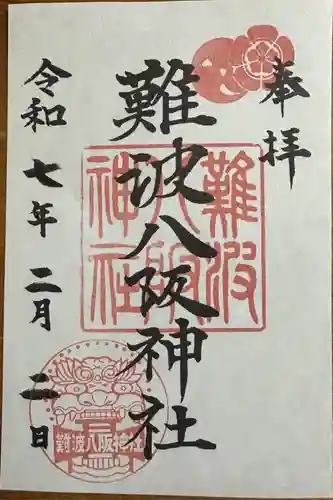 奉拝
難波八阪神社
令和七年二月二日
難波
八阪
神社
難波八阪神社